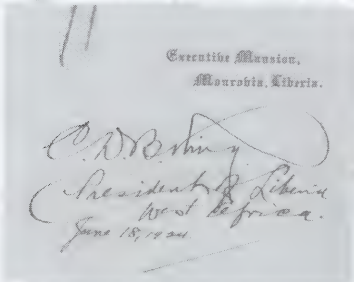 Executive Mansion,
Monrovia, Liberia.
C. D. B. King.
President of Liberia
West Africa.
June 18, 1924